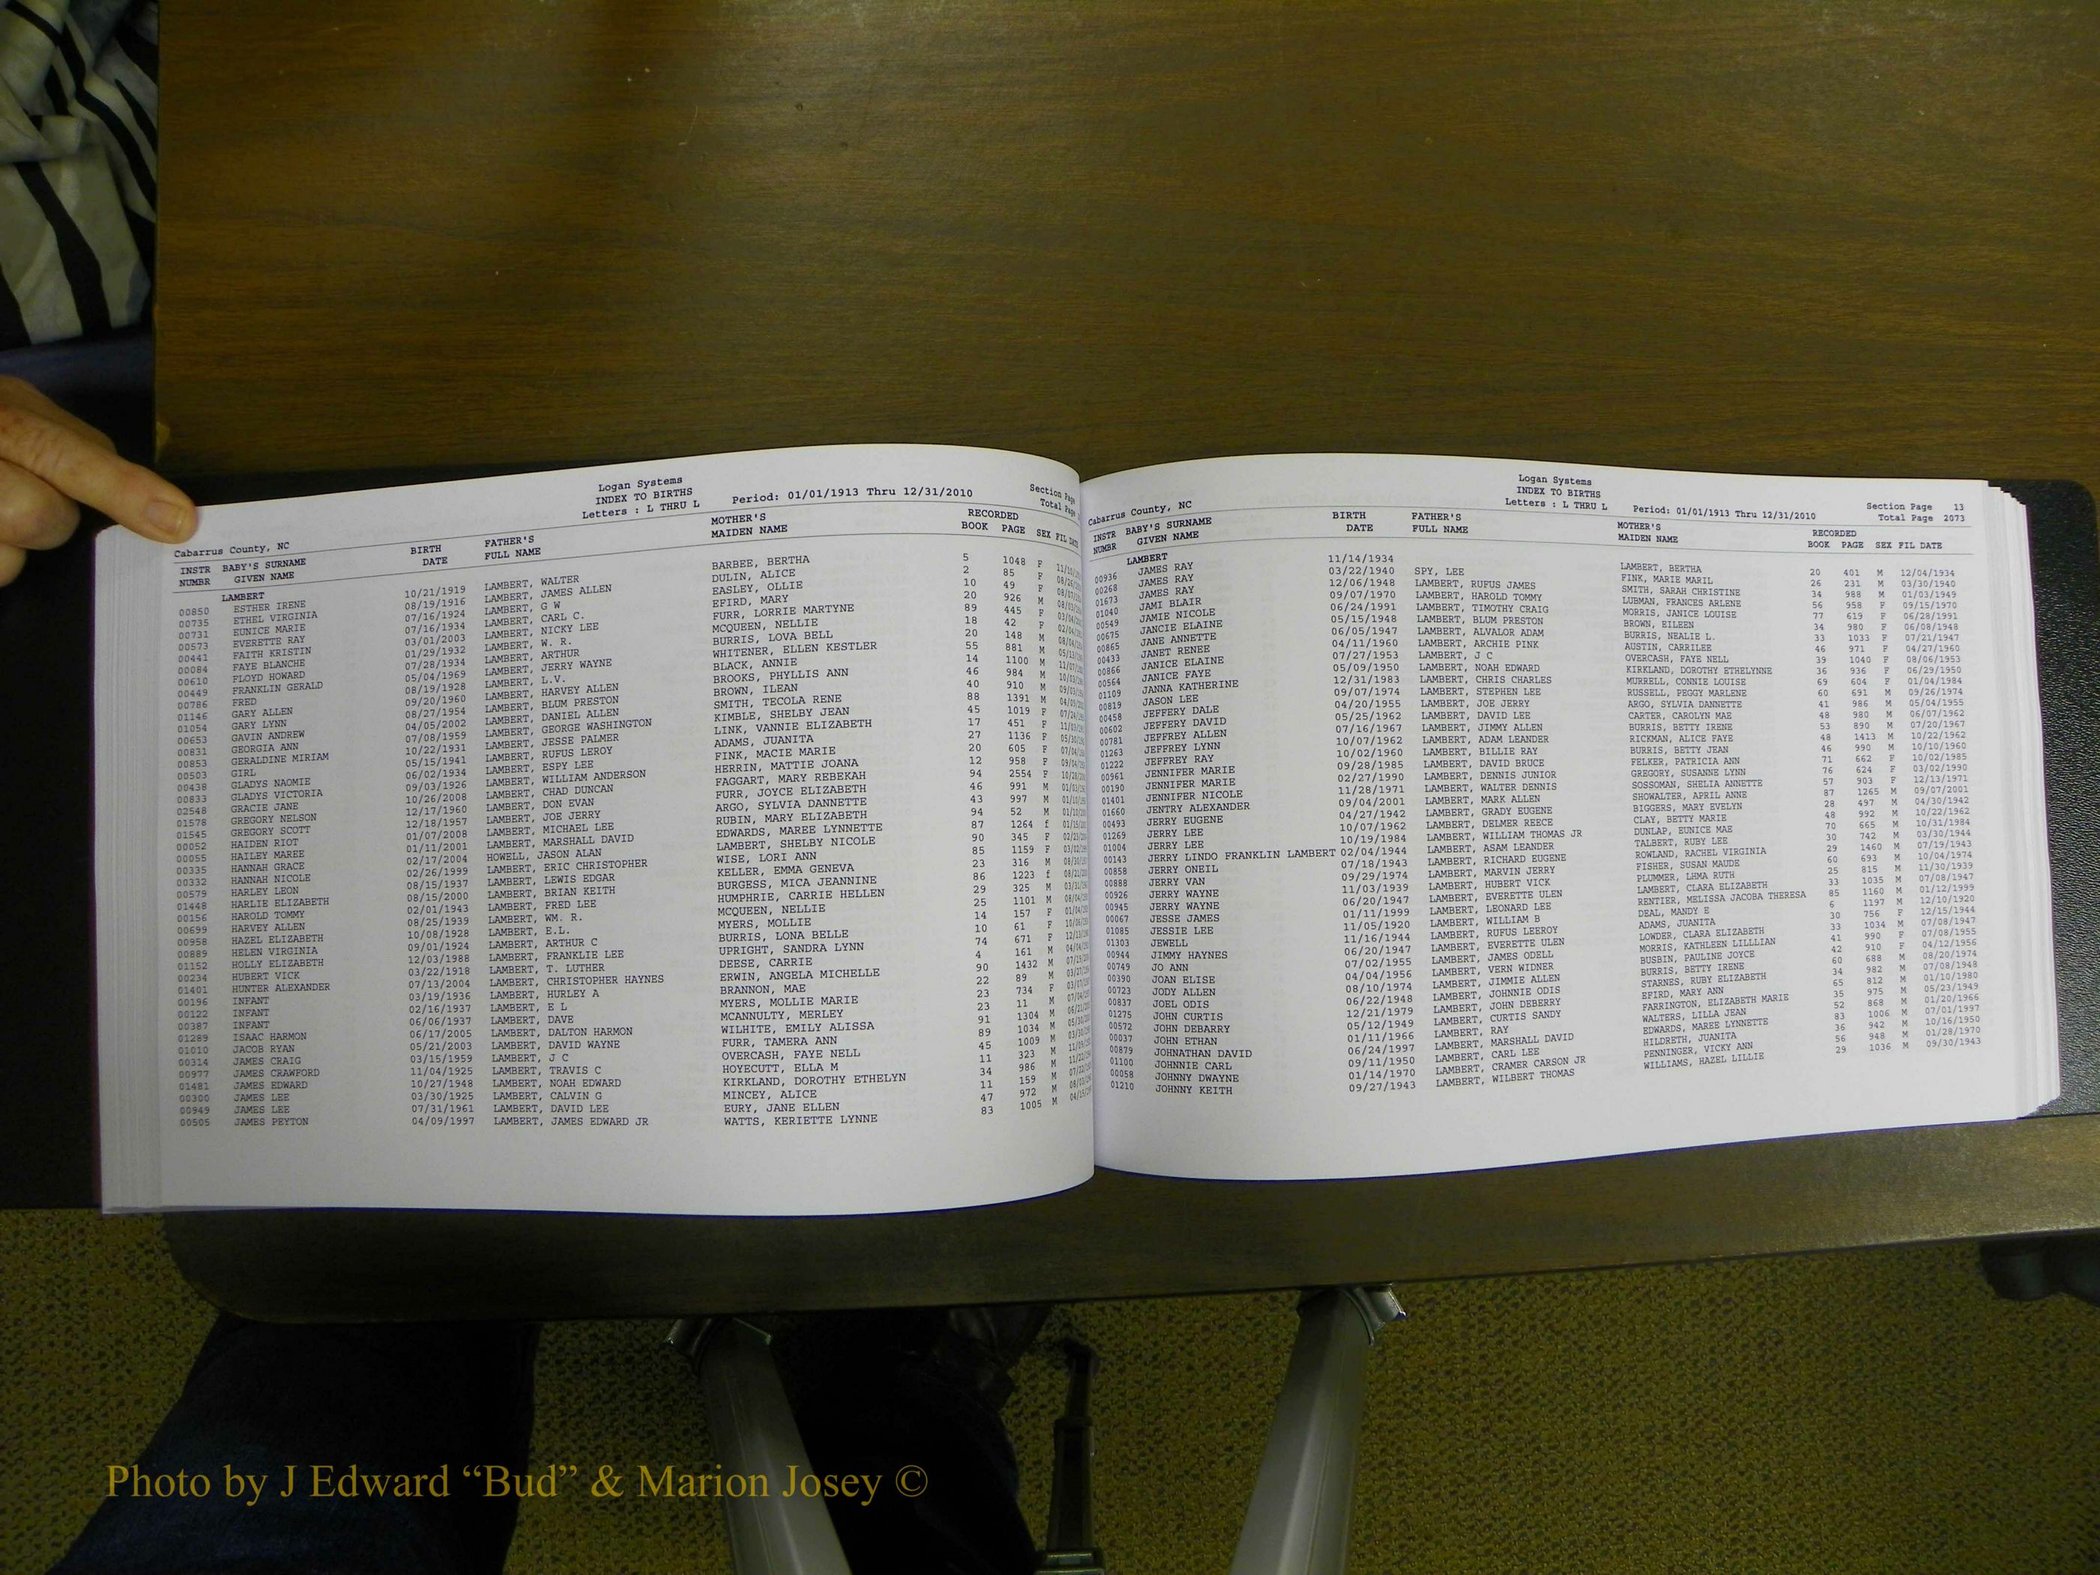 Logan Systems
INDEX TO BIRTHS
Letters : L THRU L Period: 01/01/1913 Thru 12/31/2010
Section Page
Total Page
Cabarrus County, NC
INSTR BABY'S SURNAME BIRTH FATHER'S MOTHER'S RECORDED
NUMBR GIVEN NAME DATE FULL NAME MAIDEN NAME BOOK PAGE SEX FIL DATE
LAMBERT
00850 ESTHER IRENE 10/21/1919 LAMBERT, WALTER BARBEE, BERTHA 5 1048 F
00735 ETHEL VIRGINIA 08/19/1916 LAMBERT, JAMES ALLEN DULIN, ALICE 2 85 F
00731 EUNICE MARIE 07/16/1924 LAMBERT, G W EASLEY, OLLIE 10 49 F
00573 EVERETTE RAY 07/16/1934 LAMBERT, CARL C. EFIRD, MARY 20 926 M
00441 FAITH KRISTIN 03/01/2003 LAMBERT, NICKY LEE FURR, LORRIE MARTYNE 89 445 F
00084 FAYE BLANCHE 01/29/1932 LAMBERT, W. R. MCQUEEN, NELLIE 18 42 F
00610 FLOYD HOWARD 07/28/1934 LAMBERT, ARTHUR BURRIS, LOVA BELL 20 148 M
00449 FRANKLIN GERALD 05/04/1969 LAMBERT, JERRY WAYNE WHITENER, ELLEN KESTLER 55 881 M
00786 FRED 08/19/1928 LAMBERT, L.V. BLACK, ANNIE 14 1100 M
01146 GARY ALLEN 09/20/1960 LAMBERT, HARVEY ALLEN BROOKS, PHYLLIS ANN 46 984 M
01054 GARY LYNN 08/27/1954 LAMBERT, BLUM PRESTON BROWN, ILEAN 40 910 M
00653 GAVIN ANDREW 04/05/2002 LAMBERT, DANIEL ALLEN SMITH, TECOLA RENE 88 1391 M
00831 GEORGIA ANN 07/08/1959 LAMBERT, GEORGE WASHINGTON KIMBLE, SHELBY JEAN 45 1019 F
00853 GERALDINE MIRIAM 10/22/1931 LAMBERT, JESSE PALMER LINK, VANNIE ELIZABETH 17 451 F
00503 GIRL 05/15/1941 LAMBERT, RUFUS LEROY ADAMS, JUANITA 27 1136 F
00438 GLADYS NAOMIE 06/02/1934 LAMBERT, ESPY LEE FINK, MACIE MARIE 20 605 F
00833 GLADYS VICTORIA 09/03/1926 LAMBERT, WILLIAM ANDERSON HERRIN, MATTIE JOANA 12 958 F
02548 GRACIE JANE 10/26/2008 LAMBERT, CHAD DUNCAN FAGGART, MARY REBEKAH 94 2554 F
01578 GREGORY NELSON 12/17/1960 LAMBERT, DON EVAN FURR, JOYCE ELIZABETH 46 991 M
01545 GREGORY SCOTT 12/18/1957 LAMBERT, JOE JERRY ARGO, SYLVIA DANNETTE 43 997 M
00052 HAIDEN RIOT 01/07/2008 LAMBERT, MICHAEL LEE RUBIN, MARY ELIZABETH 94 52 M
00055 HAILEY MAREE 01/11/2001 LAMBERT, MARSHALL DAVID EDWARDS, MAREE LYNNETTE 87 1264 f
00335 HANNAH GRACE 02/17/2004 HOWELL, JASON ALAN LAMBERT, SHELBY NICOLE 90 345 F
00332 HANNAH NICOLE 02/26/1999 LAMBERT, ERIC CHRISTOPHER WISE, LORI ANN 85 1159 F
00579 HARLEY LEON 08/15/1937 LAMBERT, LEWIS EDGAR KELLER, EMMA GENEVA 23 316 M
01448 HARLIE ELIZABETH 08/15/2000 LAMBERT, BRIAN KEITH BURGESS, MICA JEANNINE 86 1223 f
00156 HAROLD TOMMY 02/01/1943 LAMBERT, FRED LEE HUMPHRIE, CARRIE HELLEN 29 325 M
00699 HARVEY ALLEN 08/25/1939 LAMBERT, WM. R. MCQUEEN, NELLIE 25 1101 M
00958 HAZEL ELIZABETH 10/08/1928 LAMBERT, E.L. MYERS, MOLLIE 14 157 F
00889 HELEN VIRGINIA 09/01/1924 LAMBERT, ARTHUR C BURRIS, LONA BELLE 10 61 F
01152 HOLLY ELIZABETH 12/03/1988 LAMBERT, FRANKLIE LEE UPRIGHT, SANDRA LYNN 74 671 F
00234 HUBERT VICK 03/22/1918 LAMBERT, T. LUTHER DEESE, CARRIE 4 161 M
01401 HUNTER ALEXANDER 07/13/2004 LAMBERT, CHRISTOPHER HAYNES ERWIN, ANGELA MICHELLE 90 1432 M
00196 INFANT 03/19/1936 LAMBERT, HURLEY A BRANNON, MAE 22 89 M
00122 INFANT 02/16/1937 LAMBERT, E L MYERS, MOLLIE MARIE 23 734 F
00387 INFANT 06/06/1937 LAMBERT, DAVE MCANNULTY, MERLEY 23 11 M
01289 ISAAC HARMON 06/17/2005 LAMBERT, DALTON HARMON WILHITE, EMILY ALISSA 91 1304 M
01010 JACOB RYAN 05/21/2003 LAMBERT, DAVID WAYNE FURR, TAMERA ANN 89 1034 M
00314 JAMES CRAIG 03/15/1959 LAMBERT, J C OVERCASH, FAYE NELL 45 1009 M
00977 JAMES CRAWFORD 11/04/1925 LAMBERT, TRAVIS C HOYECUTT, ELLA M 11 323 M
01481 JAMES EDWARD 10/27/1948 LAMBERT, NOAH EDWARD KIRKLAND, DOROTHY ETHELYN 34 986 M
00300 JAMES LEE 03/30/1925 LAMBERT, CALVIN G MINCEY, ALICE 11 159 M
00949 JAMES LEE 07/31/1961 LAMBERT, DAVID LEE EURY, JANE ELLEN 47 972 M
00505 JAMES PEYTON 04/09/1997 LAMBERT, JAMES EDWARD JR WATTS, KERIETTE LYNNE 83 1005 M
Logan Systems
INDEX TO BIRTHS
Letters : L THRU L Period: 01/01/1913 Thru 12/31/2010
Section Page 13
Total Page 2073
Cabarrus County, NC
INSTR BABY'S SURNAME BIRTH FATHER'S MOTHER'S RECORDED
NUMBR GIVEN NAME DATE FULL NAME MAIDEN NAME BOOK PAGE SEX FIL DATE
LAMBERT
00936 JAMES RAY 11/14/1934 LAMBERT, BERTHA 20 401 M 12/04/1934
00268 JAMES RAY 03/22/1940 SPY, LEE FINK, MARIE MARIL 26 231 M 03/30/1940
01673 JAMES RAY 12/06/1948 LAMBERT, RUFUS JAMES SMITH, SARAH CHRISTINE 34 988 M 01/03/1949
01040 JAMI BLAIR 09/07/1970 LAMBERT, HAROLD TOMMY LUBMAN, FRANCES ARLENE 56 958 F 09/15/1970
00549 JAMIE NICOLE 06/24/1991 LAMBERT, TIMOTHY CRAIG MORRIS, JANICE LOUISE 77 619 F 06/28/1991
00675 JANCIE ELAINE 05/15/1948 LAMBERT, BLUM PRESTON BROWN, EILEEN 34 980 F 06/08/1948
00865 JANE ANNETTE 06/05/1947 LAMBERT, ALVALOR ADAM BURRIS, NEALIE L. 33 1033 F 07/21/1947
00433 JANET RENEE 04/11/1960 LAMBERT, ARCHIE PINK AUSTIN, CARRILEE 46 971 F 04/27/1960
00866 JANICE ELAINE 07/27/1953 LAMBERT, J C OVERCASH, FAYE NELL 39 1040 F 08/06/1953
00564 JANICE FAYE 05/09/1950 LAMBERT, NOAH EDWARD KIRKLAND, DOROTHY ETHELYNNE 36 936 F 06/29/1950
01109 JANNA KATHERINE 12/31/1983 LAMBERT, CHRIS CHARLES MURRELL, CONNIE LOUISE 69 604 F 01/04/1984
00819 JASON LEE 09/07/1974 LAMBERT, STEPHEN LEE RUSSELL, PEGGY MARLENE 60 691 M 09/26/1974
00458 JEFFERY DALE 04/20/1955 LAMBERT, JOE JERRY ARGO, SYLVIA DANNETTE 41 986 M 05/04/1955
00602 JEFFERY DAVID 05/25/1962 LAMBERT, DAVID LEE CARTER, CAROLYN MAE 48 980 M 06/07/1962
00781 JEFFREY ALLEN 07/16/1967 LAMBERT, JIMMY ALLEN BURRIS, BETTY IRENE 53 890 M 07/20/1967
01263 JEFFREY LYNN 10/07/1962 LAMBERT, ADAM LEANDER RICKMAN, ALICE FAYE 48 1413 M 10/22/1962
01222 JEFFREY RAY 10/02/1960 LAMBERT, BILLIE RAY BURRIS, BETTY JEAN 46 990 M 10/10/1960
00961 JENNIFER MARIE 09/28/1985 LAMBERT, DAVID BRUCE FELKER, PATRICIA ANN 71 662 F 10/02/1985
00190 JENNIFER MARIE 02/27/1990 LAMBERT, DENNIS JUNIOR GREGORY, SUSANNE LYNN 76 624 F 03/02/1990
01401 JENNIFER NICOLE 11/28/1971 LAMBERT, WALTER DENNIS SOSSOMAN, SHELIA ANNETTE 57 903 F 12/13/1971
01660 JENTRY ALEXANDER 09/04/2001 LAMBERT, MARK ALLEN SHOWALTER, APRIL ANNE 87 1265 M 09/07/2001
00493 JERRY EUGENE 04/27/1942 LAMBERT, GRADY EUGENE BIGGERS, MARY EVELYN 28 497 M 04/30/1942
01269 JERRY LEE 10/07/1962 LAMBERT, DELMER REECE CLAY, BETTY MARIE 48 992 M 10/22/1962
01004 JERRY LEE 10/19/1984 LAMBERT, WILLIAM THOMAS JR DUNLAP, EUNICE MAE 70 665 M 10/31/1984
00143 JERRY LINDO FRANKLIN LAMBERT 02/04/1944 LAMBERT, ASAM LEANDER TALBERT, RUBY LEE 30 742 M 03/30/1944
00858 JERRY ONEIL 07/18/1943 LAMBERT, RICHARD EUGENE ROWLAND, RACHEL VIRGINIA 29 1460 M 07/19/1943
00888 JERRY VAN 09/29/1974 LAMBERT, MARVIN JERRY FISHER, SUSAN MAUDE 60 693 M 10/04/1974
00926 JERRY WAYNE 11/03/1939 LAMBERT, HUBERT VICK PLUMMER, LHMA RUTH 25 815 M 11/30/1939
00945 JERRY WAYNE 06/20/1947 LAMBERT, EVERETTE ULEN LAMBERT, CLARA ELIZABETH 33 1035 M 07/08/1947
00067 JESSE JAMES 01/11/1999 LAMBERT, LEONARD LEE RENTIER, MELISSA JACOBA THERESA 85 1160 M 01/12/1999
01085 JESSIE LEE 11/05/1920 LAMBERT, WILLIAM B DEAL, MANDY E 6 1197 M 12/10/1920
01303 JEWELL 11/16/1944 LAMBERT, RUFUS LEEROY ADAMS, JUANITA 30 756 F 12/15/1944
00944 JIMMY HAYNES 06/20/1947 LAMBERT, EVERETTE ULEN LOWDER, CLARA ELIZABETH 33 1034 M 07/08/1947
00749 JO ANN 07/02/1955 LAMBERT, JAMES ODELL MORRIS, KATHLEEN LILLLIAN 41 990 F 07/08/1955
00390 JOAN ELISE 04/04/1956 LAMBERT, VERN WIDNER BUSBIN, PAULINE JOYCE 42 910 F 04/12/1956
00723 JODY ALLEN 08/10/1974 LAMBERT, JIMMIE ALLEN BURRIS, BETTY IRENE 60 688 M 08/20/1974
00837 JOEL ODIS 06/22/1948 LAMBERT, JOHNNIE ODIS STARNES, RUBY ELIZABETH 34 982 M 07/08/1948
01275 JOHN CURTIS 12/21/1979 LAMBERT, JOHN DEBERRY EFIRD, MARY ANN 65 812 M 01/10/1980
00572 JOHN DEBARRY 05/12/1949 LAMBERT, CURTIS SANDY FARRINGTON, ELIZABETH MARIE 35 975 M 05/23/1949
00037 JOHN ETHAN 01/11/1966 LAMBERT, RAY WALTERS, LILLA JEAN 52 868 M 01/20/1966
00879 JOHNATHAN DAVID 06/24/1997 LAMBERT, MARSHALL DAVID EDWARDS, MAREE LYNNETTE 83 1006 M 07/01/1997
01100 JOHNNIE CARL 09/11/1950 LAMBERT, CARL LEE HILDRETH, JUANITA 36 942 M 10/16/1950
00058 JOHNNY DWAYNE 01/14/1970 LAMBERT, CRAMER CARSON JR PENNINGER, VICKY ANN 56 948 M 01/28/1970
01210 JOHNNY KEITH 09/27/1943 LAMBERT, WILBERT THOMAS WILLIAMS, HAZEL LILLIE 29 1036 M 09/30/1943
Photo by J Edward “Bud” & Marion Josey ©